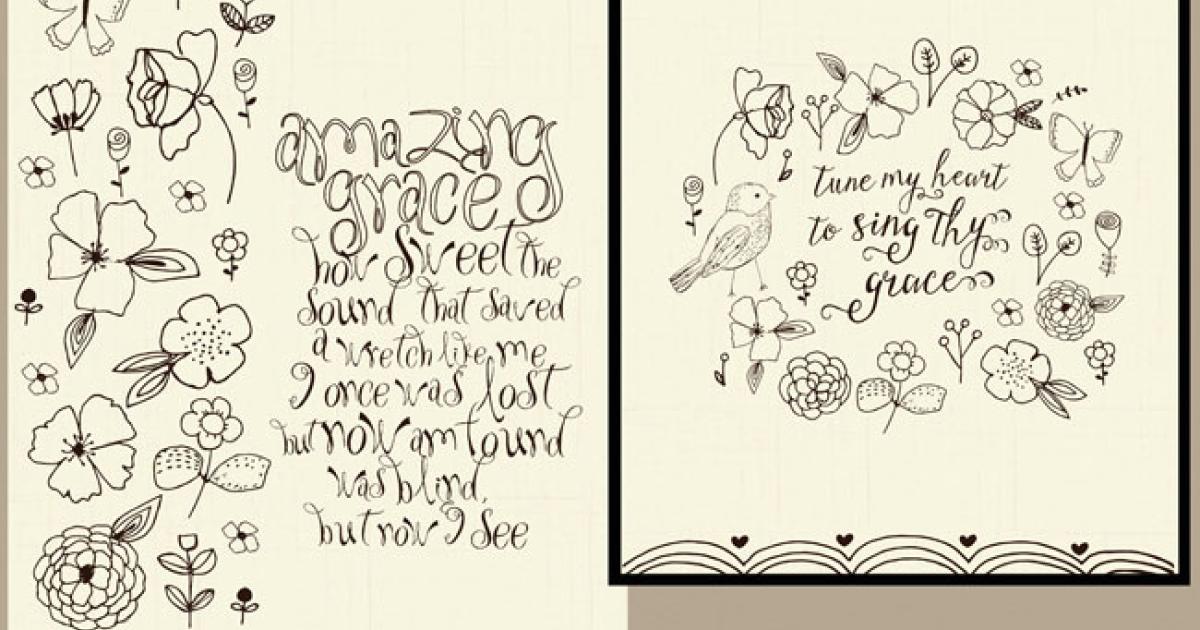 amazing
grace
how sweet the
sound that saved
a wretch like me
I once was lost
but now am found
was blind,
but now I see
tune my heart
to sing thy
grace